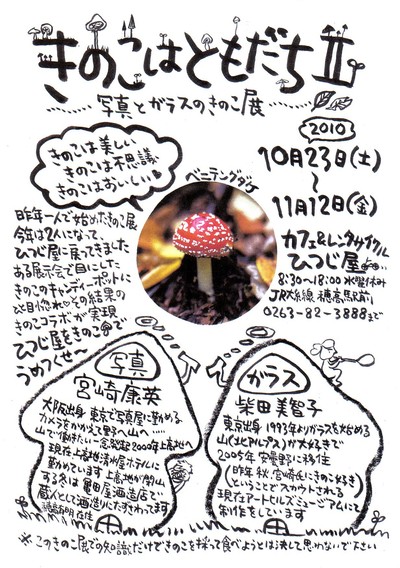 きのこはともだちⅡ
写真とガラスのきのこ展
2010
10月23日(土)
〜
11月12日(金)
きのこは美しい
きのこは不思議
きのこはおいしい
ベニテングダケ
昨年一人で始めたきのこ展
今年は2人になって、
ひつじ屋に戻ってきました
ある展示会で目にした
きのこのキャンディーポットに
ひと目惚れ その結果の
きのこコラボが実現
ひつじ屋をきのこで
うめつくせ〜
カフェ&レンタサイクル
ひつじ屋
8:30〜18:00 水曜休み
JR大糸線 穂高駅前
0263-82-3888まで
写真
宮崎康英
大阪出身 東京で写真屋に勤める
カメラをかかえて野へ山へ
山で働きたい一念発起2000年上高地へ
現在上高地清水屋ホテルに
勤めています 上高地が閉山
する冬は亀田屋酒造店で
蔵人として酒造りにたずさわってます
在住
ガラス
柴田美智子
東京出身 1993年よりガラスを始める
山(北アルプス)が大好きで
2005年 安曇野に移住
(昨年秋、宮崎氏にきのこ好き
ということでスカウトされる)
現在アートヒルズミュージアムにて
制作をしています
※このきのこ展での知識だけできのこを採って食べようとは決して思わないで下さい